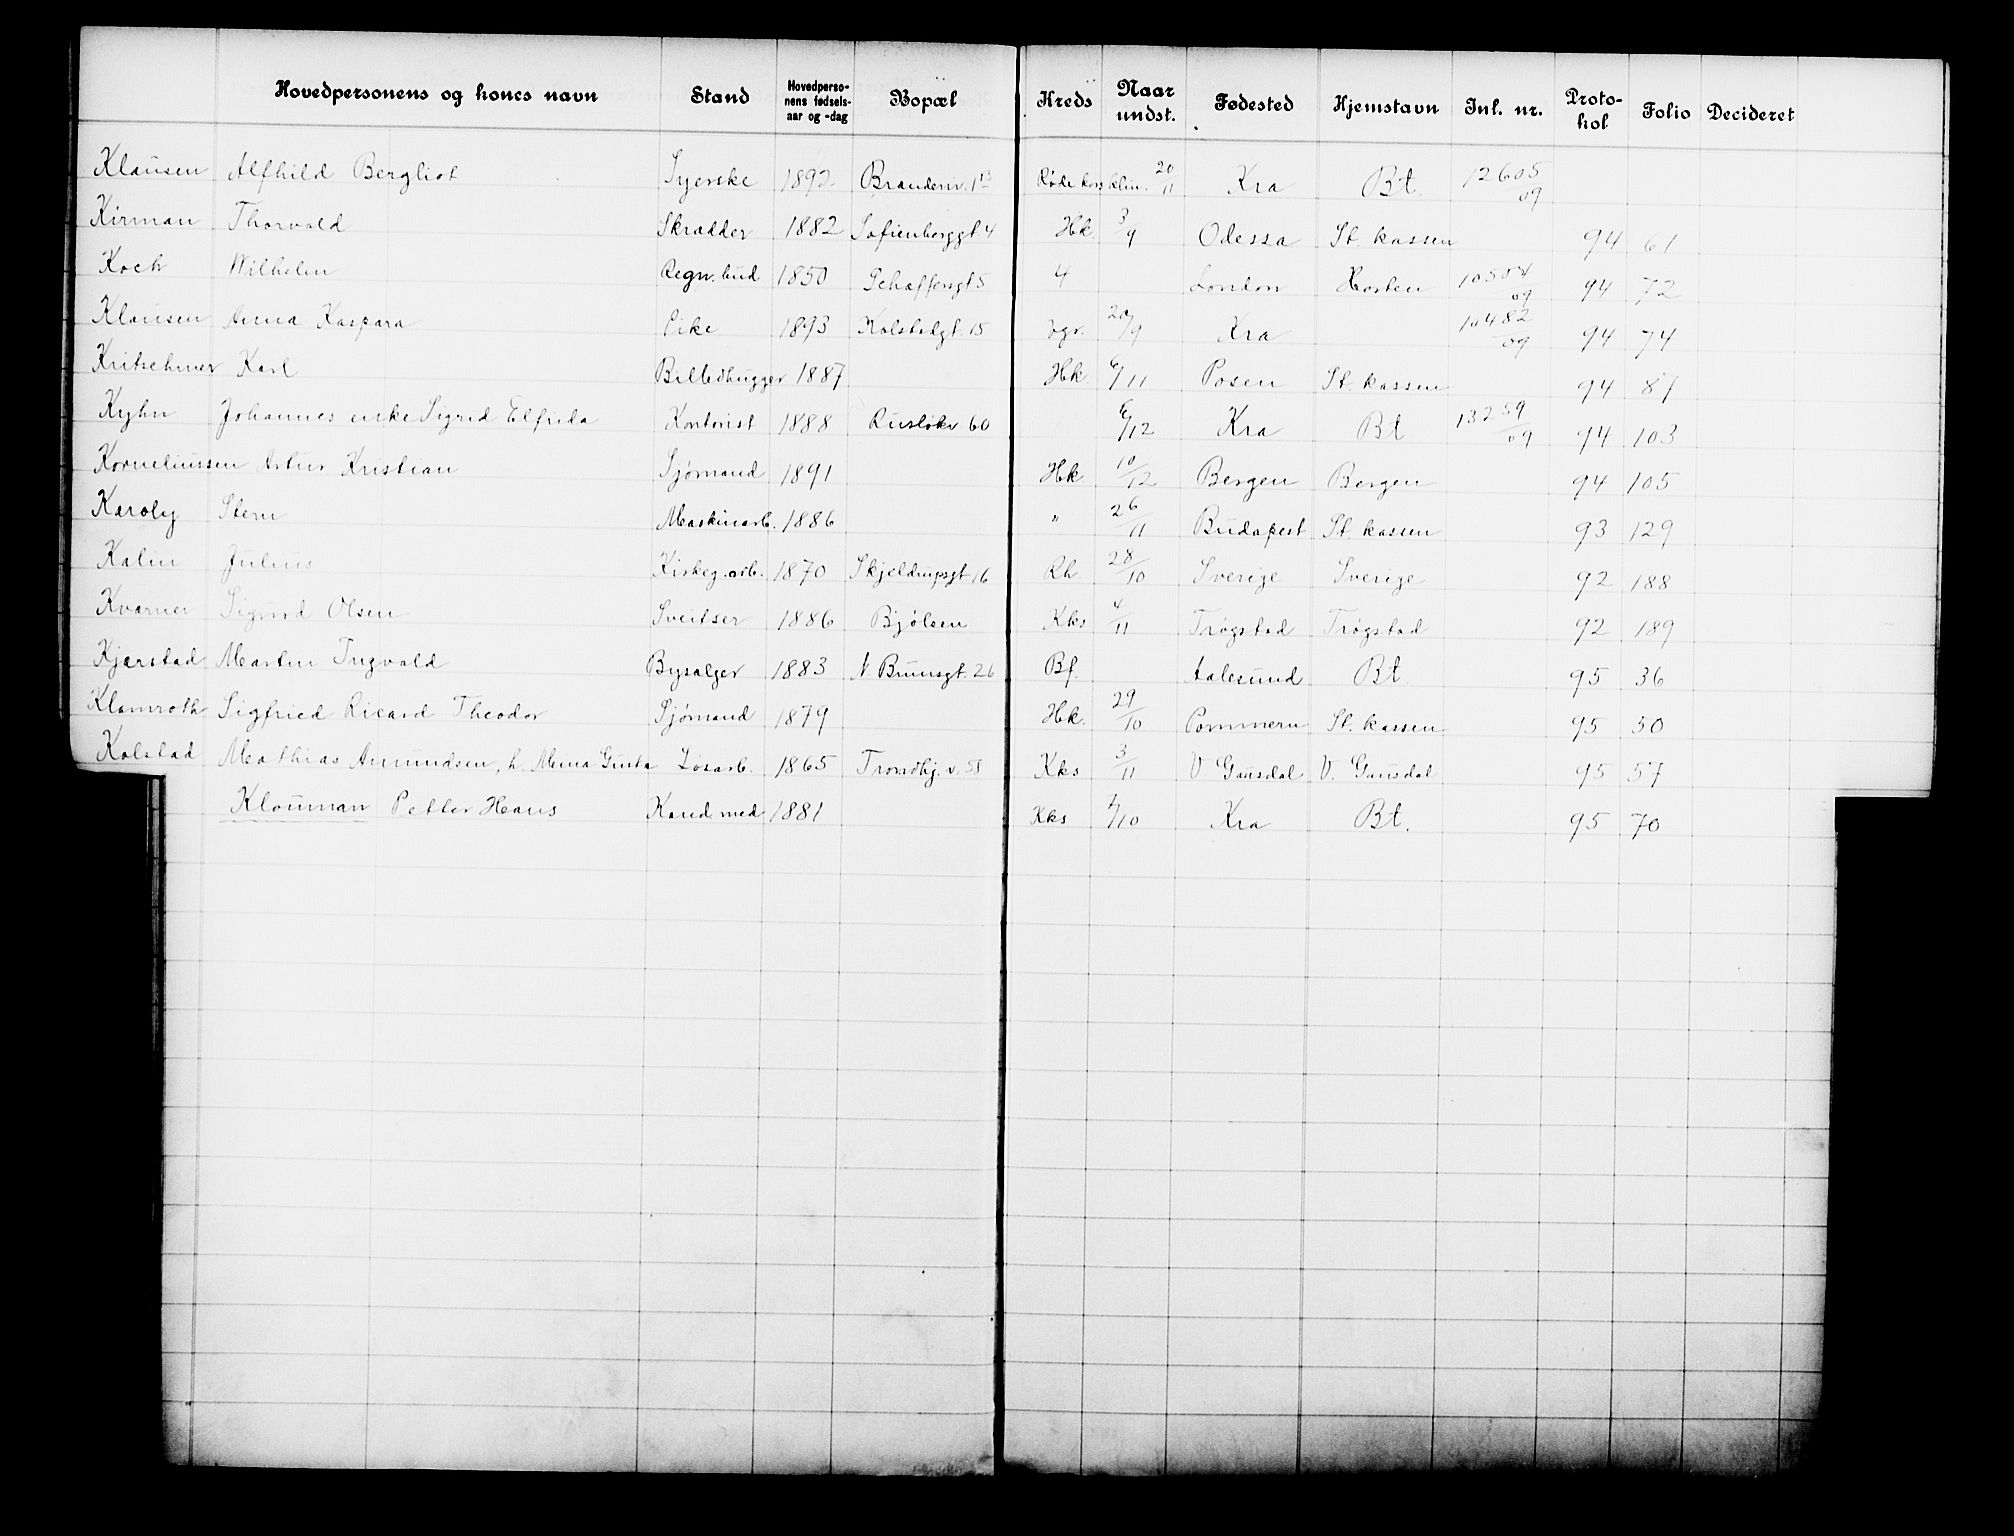 Hovedpersonens og kones navn Stand Hovedperso-nens fødsels-aar og -dag Bopæl Kreds Naar undst. Fødested Hjemstavn Inl. nr. Proto-kol Folio Decideret
Klausen Alfhild Bergliot Syerske 1892 Branderiv. 1 Røde kors klin. 20/11 Kra Bt. 12605/09
Kirman Thorvald Skradder 1882 Sofienberggt 4 Hk. 3/9 Odessa St. kassen 94 61
Koch Wilhelm Regn. bud 1850 Schaffersgt 5 4 London Horten 10504/09 94 72
Klausen Anna Kaspara Pike 1893 Kolstadgt. 15 Vgr. 20/9 Kra 10482/09 94 74
Kritschmer Karl Billedhugger 1887 Hk 6/11 Posen St. kassen 94 87
Kyhn Johannes enke Sigrid Elfrida Kontorist 1888 Rusløkv 60 6/12 Kra Bt 13259/09 94 103
Korneliussen Artur Kristian Sjømand 1891 Hk 10/12 Bergen Bergen 94 105
Karoly Stern Maskinarb. 1886 " 26/11 Budapest St. kassen 93 129
Kalin Julius Kirkeg. arb. 1870 Skjeldrupsgt 16 Rh. 28/10 Sverige Sverige 92 188
Kvarner Sigurd Olsen Sveitser 1886 Bjølsen Kks 4/11 Trøgstad Trøgstad 92 189
Kjærstad Martin Ingvald Bysælger 1883 N. Brunsgt. 26 Bf. Aalesund Bt 95 36
Klamroth Sigfried Ricard Theodor Sjømand 1879 Hk. 29/10 Pommern St. kassen 95 50
Kolstad Mathias Amundsen, h. Mina Gusta Løsarb. 1865 Trondhj. v. 58 Kks 3/11 V Gausdal V. Gausdal 95 57
Klouman Petter Hans Kand. med 1881 Kks 1/10 Kra Bt. 95 70